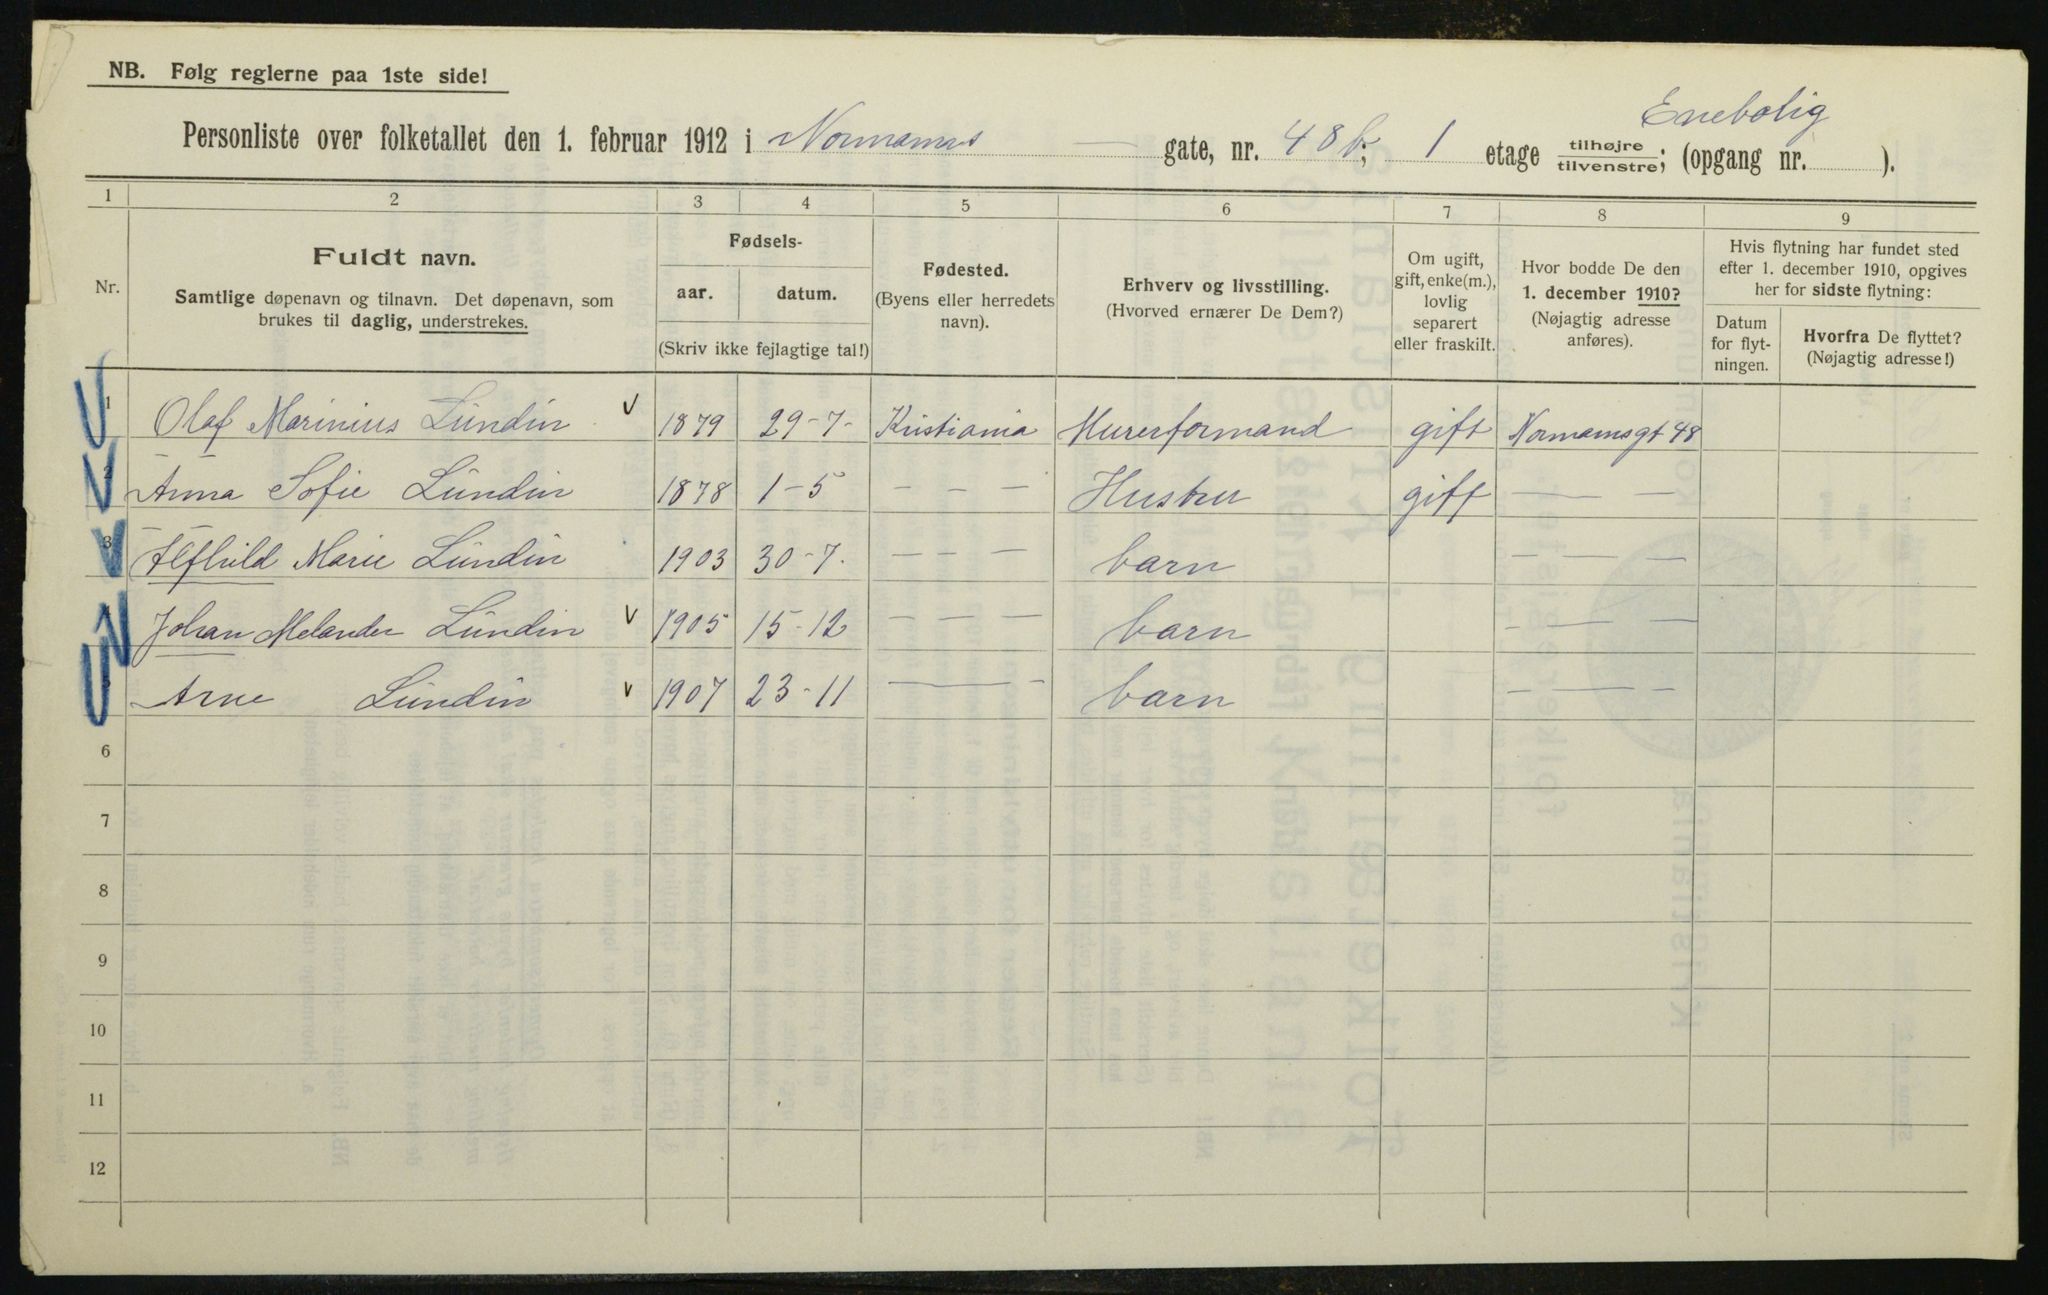 NB. Følg reglerne paa 1ste side!
Enebolig
Personliste over folketallet den 1. februar 1912 i Normanns — gate, nr. 48b; 1 etage tilhøjre/tilvenstre; (opgang nr. ).
1 2 3 4 5 6 7 8 9
Nr.
Fuldt navn.
Samtlige døpenavn og tilnavn. Det døpenavn, som
brukes til daglig, understrekes.
Fødsels-
aar. datum.
(Skriv ikke fejlagtige tal!)
Fødested.
(Byens eller herredets
navn).
Erhverv og livsstilling.
(Hvorved ernærer De Dem?)
Om ugift,
gift, enke(m.),
lovlig
separert
eller fraskilt.
Hvor bodde De den
1. december 1910?
(Nøjagtig adresse
anføres).
Hvis flytning har fundet sted
efter 1. december 1910, opgives
her for sidste flytning:
Datum
for flyt-
ningen.
Hvorfra De flyttet?
(Nøjagtig adresse!)
1 Olaf Marinius Lundin 1879 29-7- Kristiania Murerformand gift Normannsgt 48
2 Anna Sofie Lundin 1878 1-5 - - - Hustru gift - - -
3 Alfhild Marie Lundin 1903 30-7. - - - barn - - -
4 Johan Melander Lundin 1905 15-12 - - - barn - - -
5 Arne Lundin 1907 23-11 - - - barn - - -
6
7
8
9
10
11
12